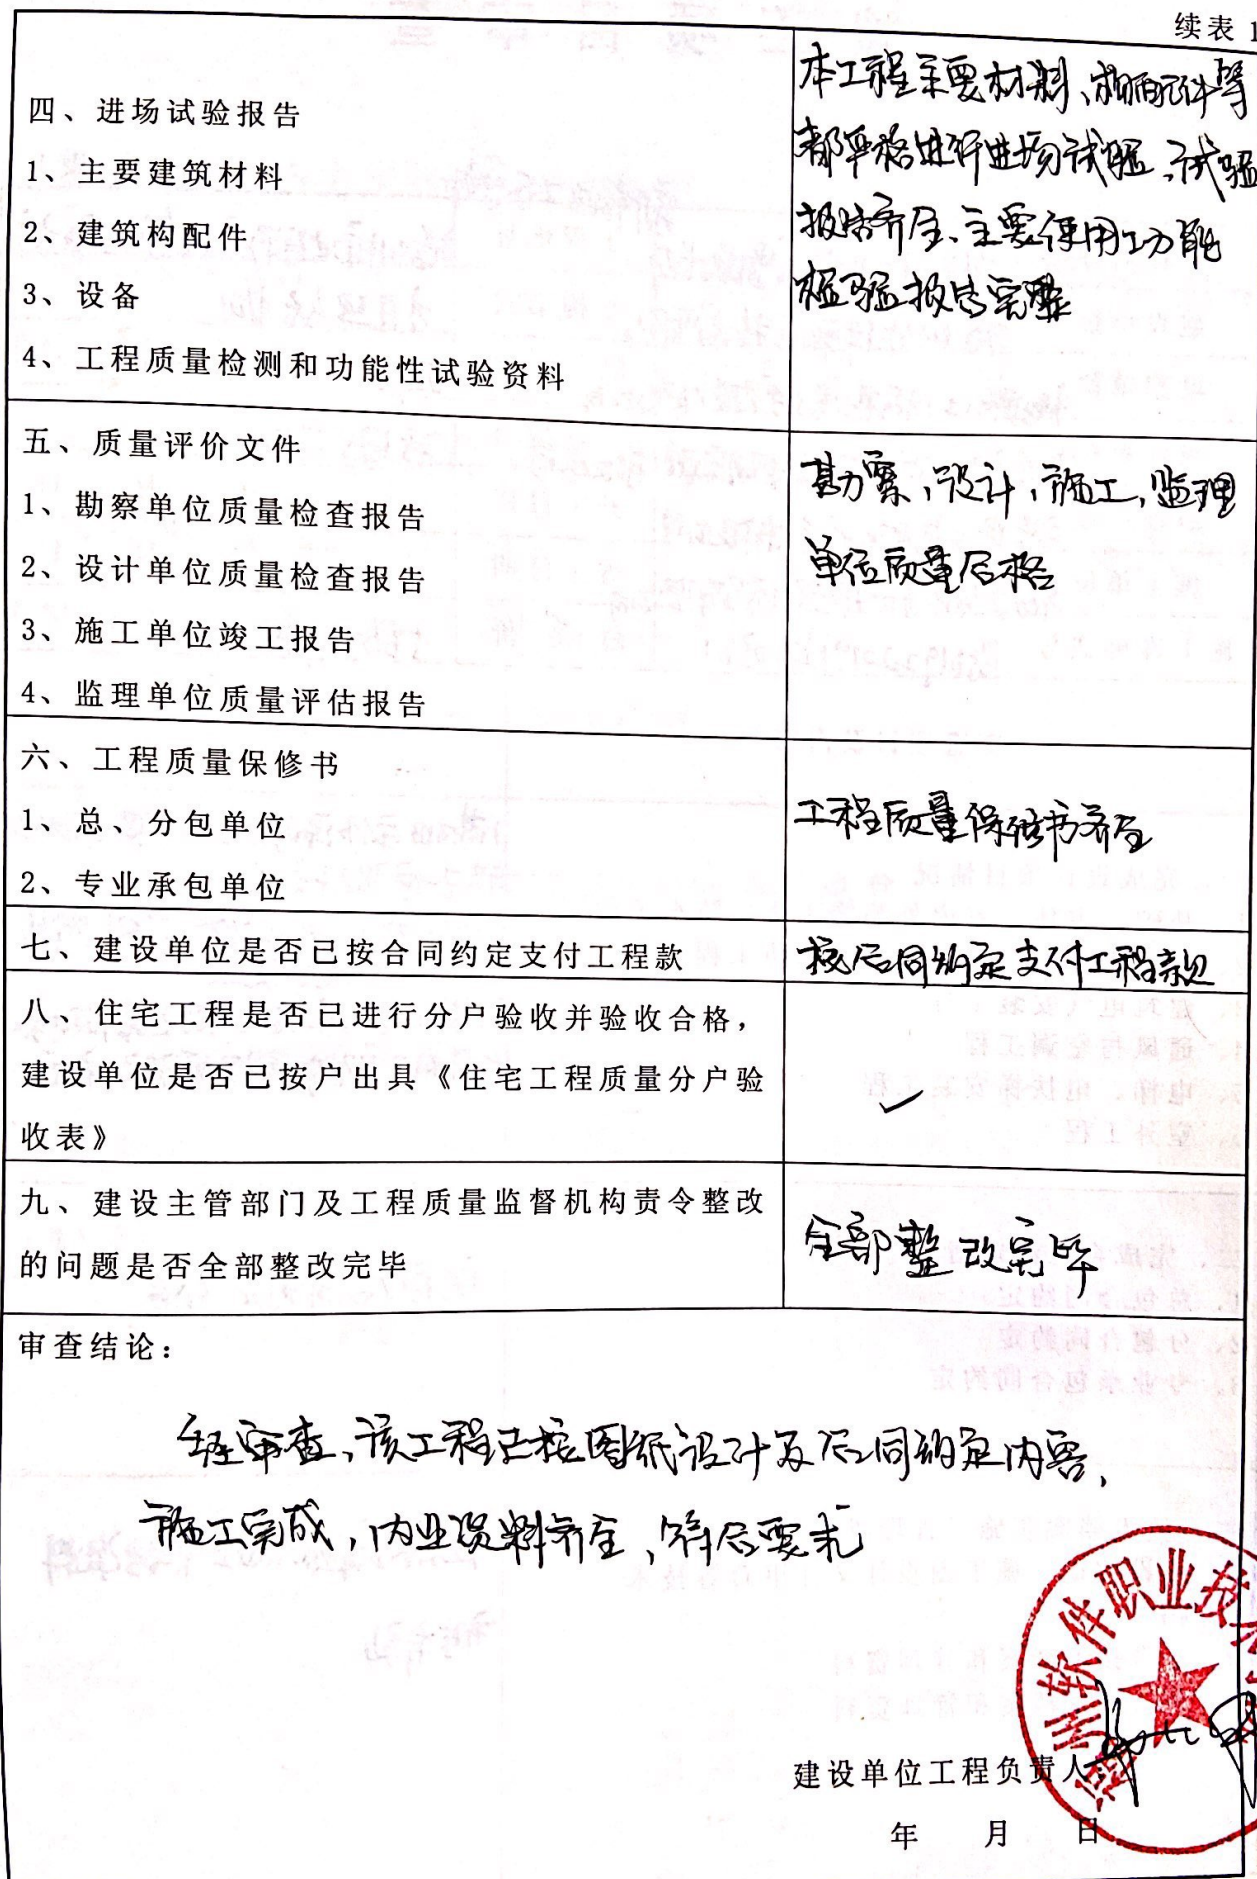 续表 1
四、进场试验报告
1、主要建筑材料
2、建筑构配件
3、设备
4、工程质量检测和功能性试验资料
本工程主要材料、构配件等
都严格进行进场试验、试验
报告齐全、主要使用功能
检验报告完整
五、质量评价文件
1、勘察单位质量检查报告
2、设计单位质量检查报告
3、施工单位竣工报告
4、监理单位质量评估报告
勘察，设计，施工，监理
单位质量合格
六、工程质量保修书
1、总、分包单位
2、专业承包单位
工程质量保修书齐全
七、建设单位是否已按合同约定支付工程款
按合同约定支付工程款
八、住宅工程是否已进行分户验收并验收合格，
建设单位是否已按户出具《住宅工程质量分户验
收表》
✓
九、建设主管部门及工程质量监督机构责令整改
的问题是否全部整改完毕
全部整改完毕
审查结论：
经审查、该工程已按图纸设计及合同约定内容，
施工完成，内业资料齐全，符合要求
州软件职业技
建设单位工程负责人
年 月 日